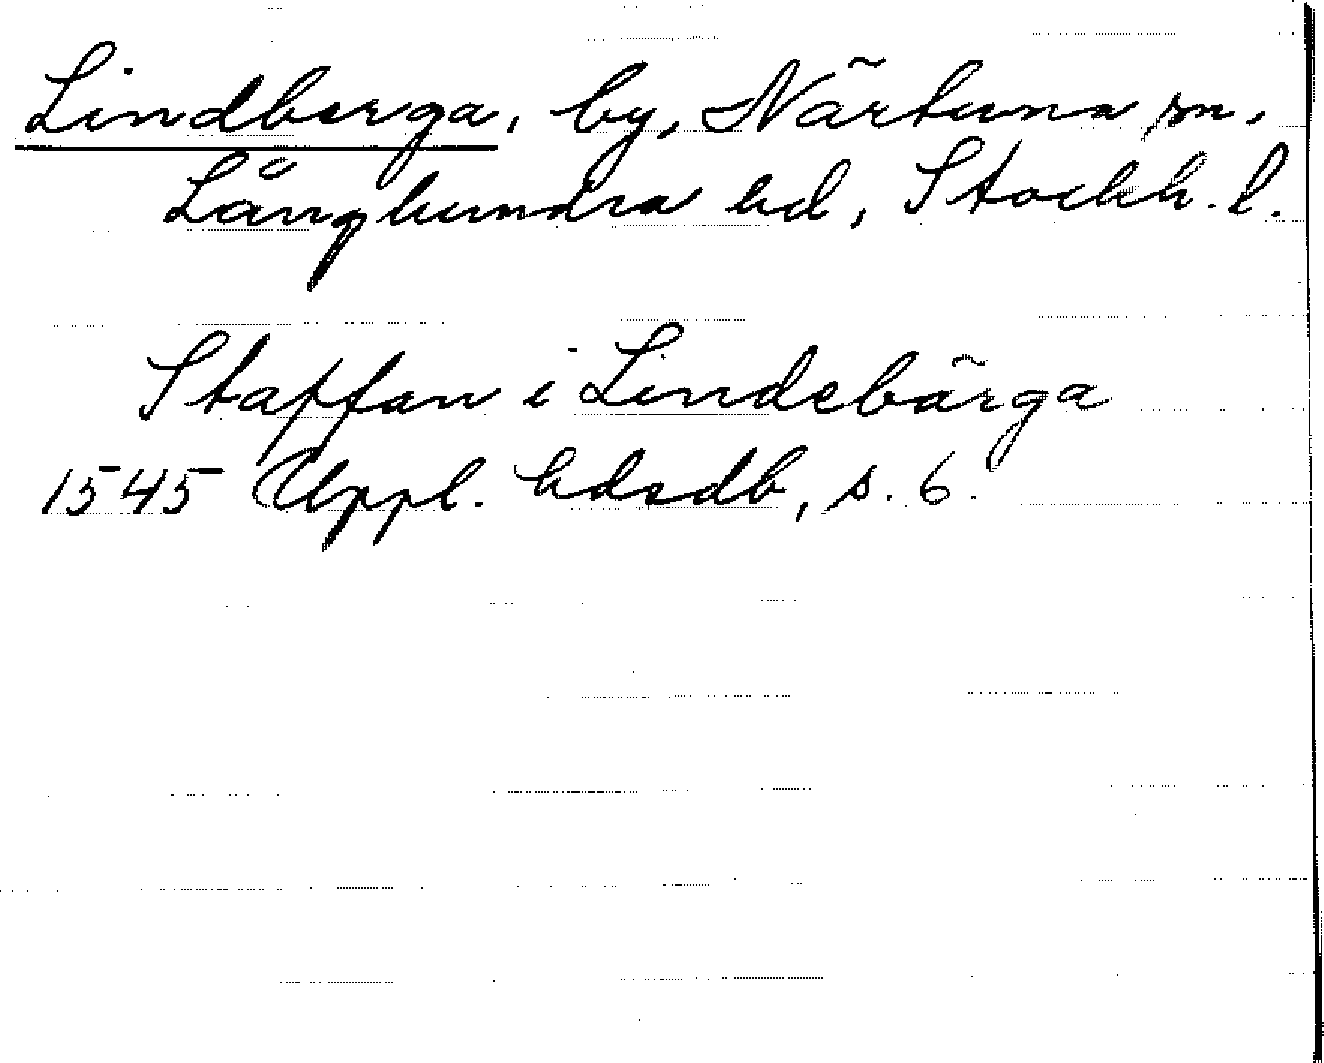 Lindberga, by, Närtuna sn.
Långhundra hd, Stockh. l.
Staffan i Lindebärga
1545 Uppl. hdsdb, s. 6.